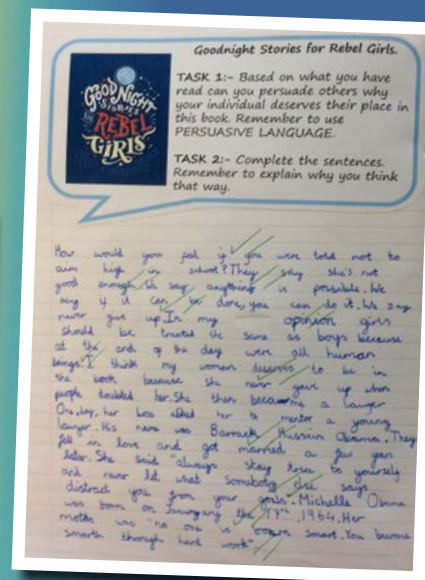 Goodnight Stories for Rebel Girls.
GOOD NIGHT
STORIES
FOR
REBEL
GIRLS
TASK 1:- Based on what you have
read can you persuade others why
your individual deserves their place in
this book. Remember to use
PERSUASIVE LANGUAGE.
TASK 2:- Complete the sentences.
Remember to explain why you think
that way.
How would you feel if you were told not to
aim high in school? They say she's not
good enough. We say anything is possible. We
say if it can be done, you can do it. We say
never give up. In my opinion girls
should be treated the same as boys because
at the end of the day were all human
beings. I think my woman deserves to be in
the book because she never gave up when
people doubted her. She then became a lawyer
One day, her boss asked her to mentor a young
lawyer. His name was Barrack Hussein Obama. They
fell in love and got married a few years
later. She said "always stay true to yourself
and never let what somebody else says
distract you from your goals. Michelle Obama
was born on the 17th, 1964. Her
motto was "no one is born smart. You become
smart through hard work"